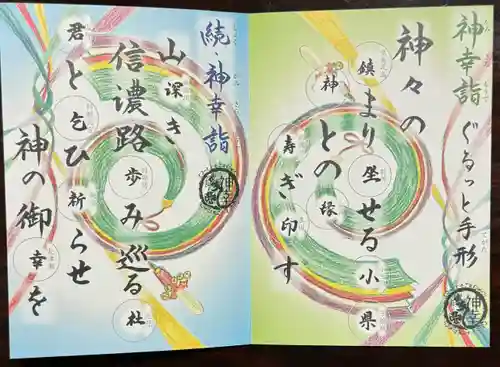 神幸詣 ぐるっと手形
神々の
鎮まり坐せる小県
神との縁
寿ぎ印す
続、神幸詣
山深き
信濃路歩み巡る社
君と乞ひ祈らせ
神の御幸を